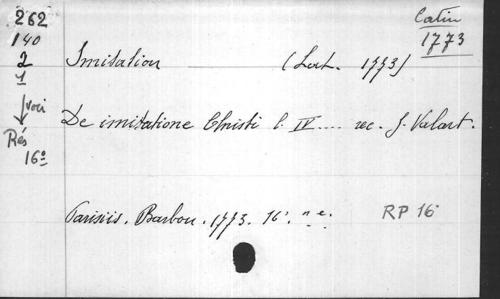 262
140
2
1
voir
Rés
16º
Latin
1773
Imitation (Lat. 1773)
De imitatione Christi l. IV .... rec. J. Valart.
Parisiis. Barbou. 1773. 16º. n.e.
RP 16